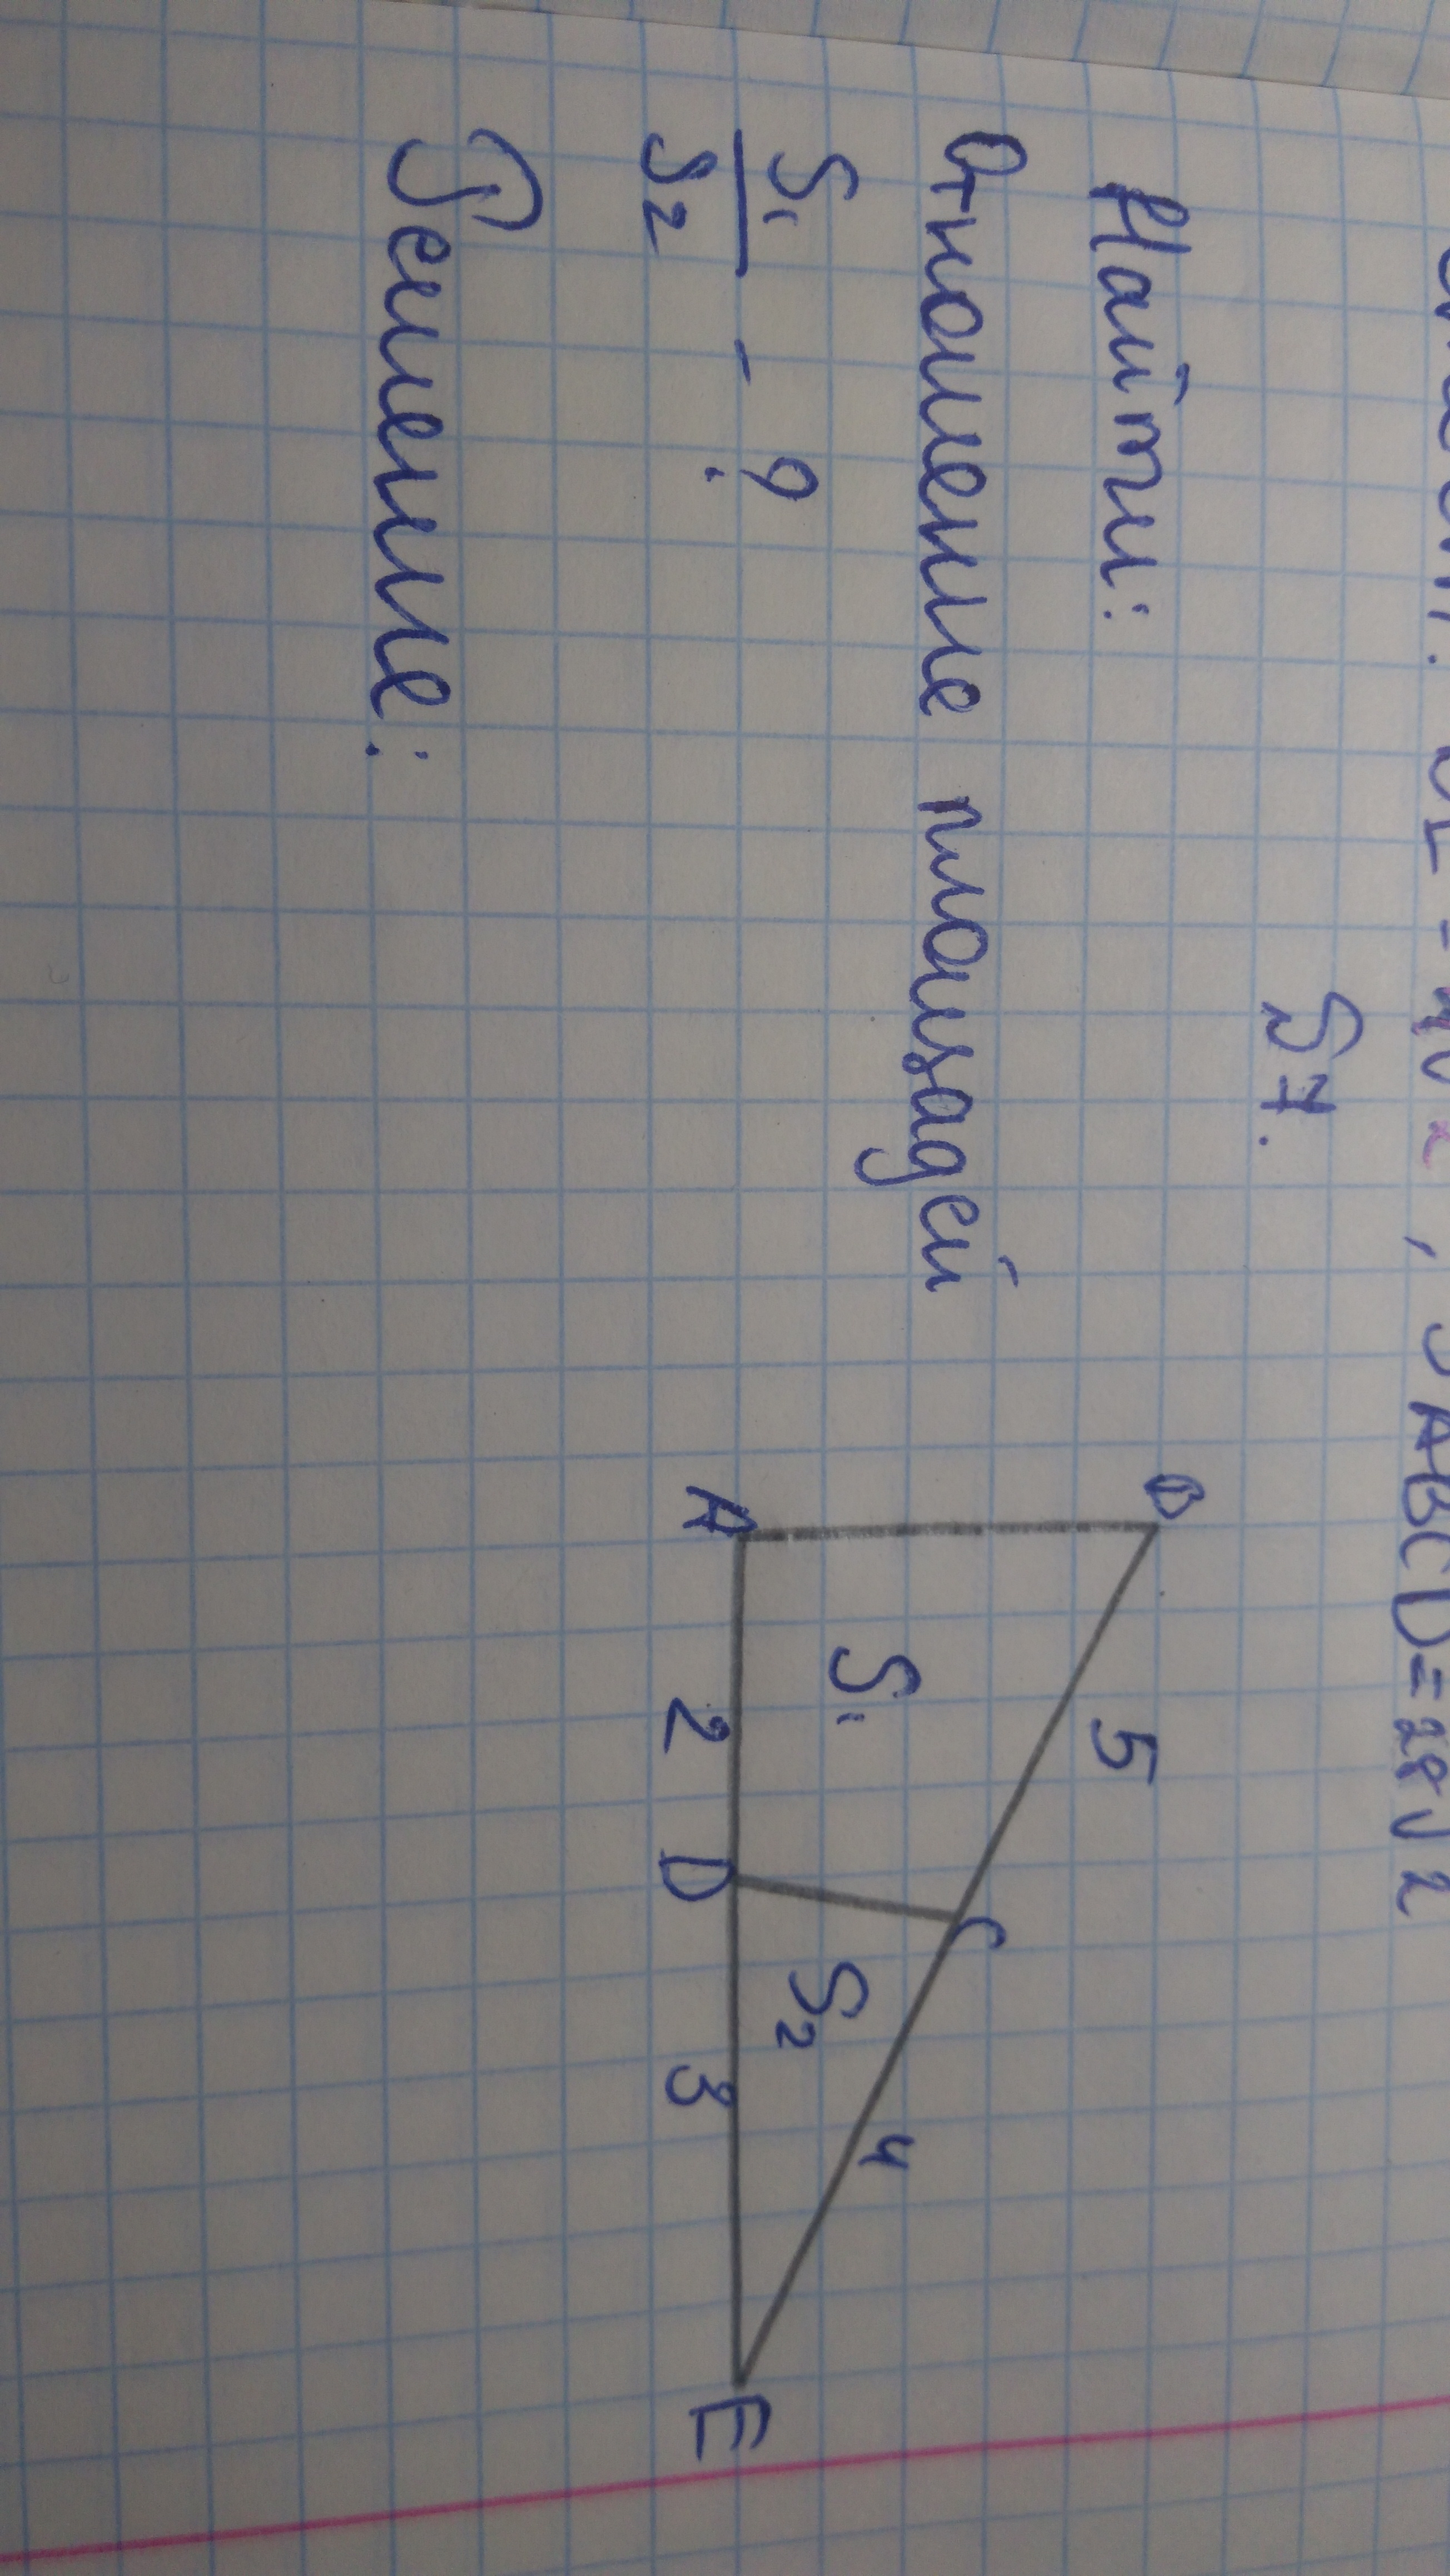 , SABCD=28√2
S7.
Найти:
Отношение площадей
S₁
— - ?
S₂
Решение:
B
5
S₁
C
4
S₂
A 2 D 3 E